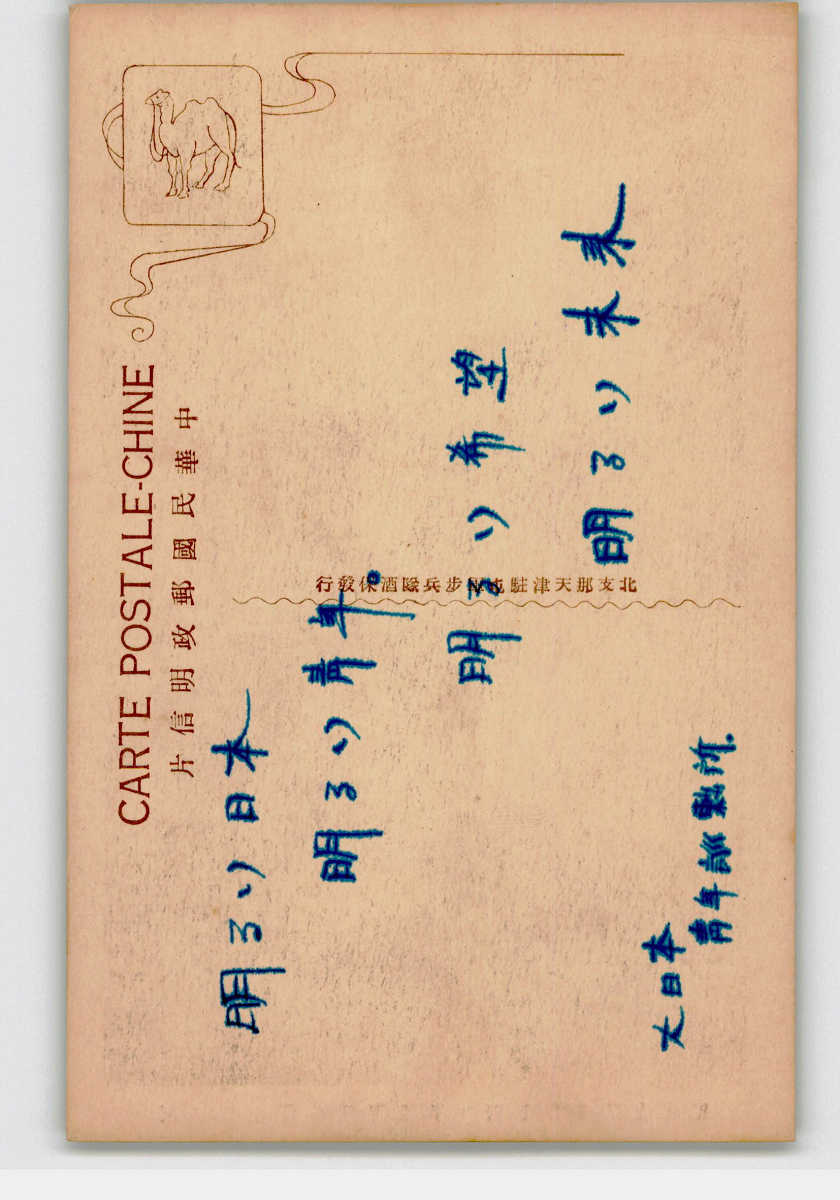 CARTE POSTALE-CHINE
中華民國郵政明信片
明るい日本
明るい青年。
明るい希望
明るい未来
大日本
青年訓練所.
北支那天津駐屯步兵隊酒保發行